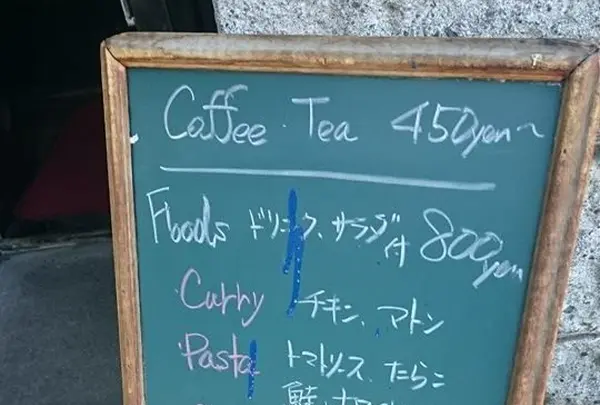 Coffee · Tea 450yen~
Foods ドリンク、サラダ付 800yen
Curry チキン、マトン
Pasta トマトソース、たらこ
鮭、